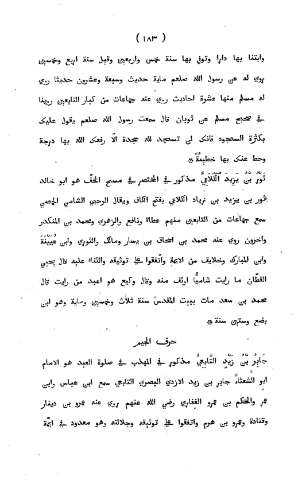 ( ١٨٣ )
وابتنا بها دارا وتوفي بها سنة خمس واربعين وقيل سنة اربع وخمسين
روي له عن رسول الله صلعم ماية حديث وسبعة وعشرون حديثا روي
له مسلم منها عشرة احاديث روي عنه جماعات من كبار التابعين روينا
في صحيح مسلم عن ثوبان قال سمعت رسول الله صلعم يقول عليك
بكثرة السجود فانك لن تسجد لله سجدة الا رفعك الله بها درجة
وحط عنك بها خطيئة ۞
ثَوْر بْن يَزِيدَ الكَلَاعِيّ مذكور في المختصر في مسح الخف هو ابو خالد
ثور بن يزيد بن زياد الكلاعي بفتح الكاف ويقال الرحبي الشامي الحمصي
سمع جماعات من التابعين منهم عطاء ونافع والزهري ومحمد بن المنكدر
واخرون روي عنه محمد بن اسحاق بن يسار ومالك والثوري وابن عُيَيْنَة
وابن المبارك وخلايف من الايمة واتفقوا على توثيقه والثناء عليه قال يحيي
القطان ما رايت شاميّا اوثق منه وقال وكيع هو اعبد من رايت قال
محمد بن سعد مات ببيت المقدس سنة ثلاث وخمسين وماية وهو ابن
بضع وستين سنة ۞
حرف الجيم
جَابِر بْن زَيْد التَّابِعِيُّ مذكور في المهذب في صلوة العبد هو الامام
ابو الشعثاء جابر بن زيد الازدي البصري التابعي سمع ابن عباس وابن
عمر والحكم بن عمرو الغفاري رضي الله عنهم روي عنه عمرو بن دينار
وقتادة وعمرو بن هرم واتفقوا على توثيقه وجلالته وهو معدود في ايمة